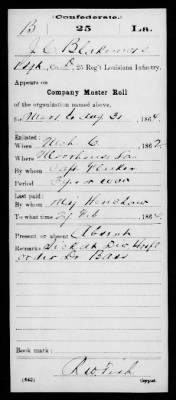 Confederate
B 25 La.
J. C. Blakemore
Corpl, Co. B, 25 Reg't Louisiana Infantry.
Appears on
Company Muster Roll
of the organization named above,
for Mar 1 to Aug 31, 1864.
Enlisted:
When Mch 6, 1862.
Where Morehouse La
By whom Capt.
Period 3 yrs or war
Last paid:
By whom Maj Henshaw
To what time 29 Feb, 1864.
Present or absent Absent
Remarks: Sick at Div Hospl
order Dr Bass
Book mark:
R W Fish
(642) Copyist.